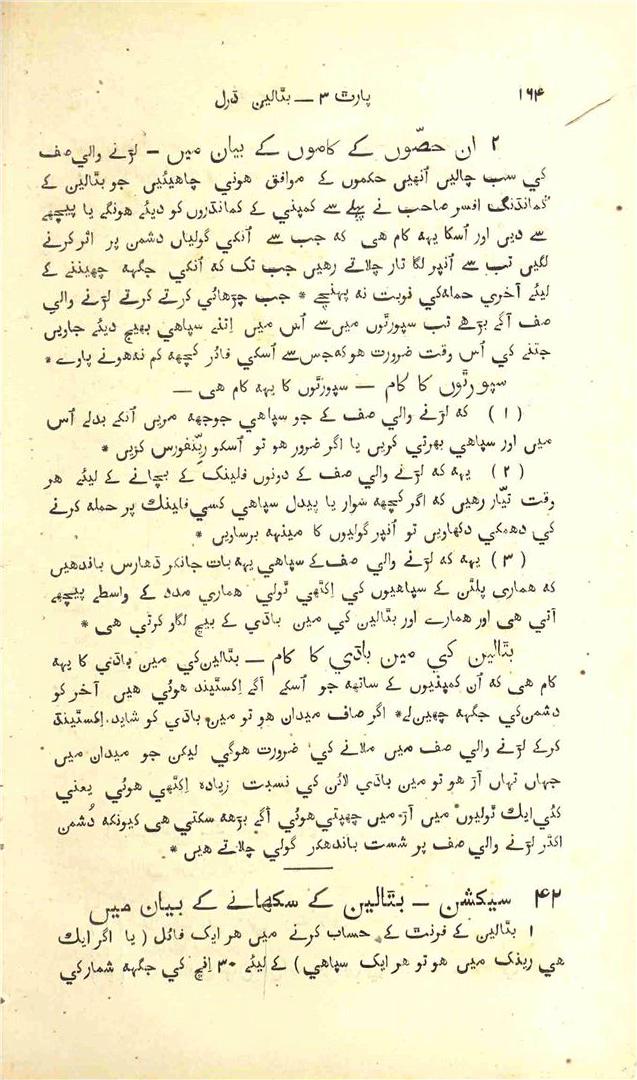 ۱۶۴ پارٹ ۳ — بٹالین ڈرل
۲ ان حصّوں کے کاموں کے بیان میں — لڑنے والي صف
کي سب چالیں اُنھیں حکموں کے موافق هوني چاهیئیں جو بٹالین کے
کمانڈنگ افسر صاحب نے پہلے سے کمپني کے کمانڈروں کو دیئے هونگے یا پیچھے
سے دیں اور اُسکا یہه کام هی که جب سے اُنکي گولیاں دشمن پر اثر کرنے
لگیں تب سے اُنپر لگا تار چلاتے رهیں جب تک که اُنکي جگہه چھیننے کے
لیئے آخري حمله کي نوبت نه پہنچے * جب چڑهائي کرتے کرتے لڑنے والي
صف آگے بڑهے تب سپورٹوں میں سے اُس میں اِتنے سپاهي بھیج دیئے جاویں
جتنے کي اُس وقت ضرورت هو که جس سے اُسکي فائر کچھه کم نه هونے پاوے *
سپورٹوں کا کام — سپورٹوں کا یہه کام هی —
( ۱ ) که لڑنے والي صف کے جو سپاهي جوجھه مریں اُنکے بدلے اُس
میں اور سپاهي بھرتي کریں یا اگر ضرور هو تو اُسکو رِینفورس کریں *
( ۲ ) یہه که لڑنے والي صف کے دونوں فلینک کے بچانے کے لیئے هر
وقت تیّار رهیں که اگر کچھه سُوار یا پیدل سپاهي کسي فلینک پر حمله کرنے
کي دھمکي دکھاویں تو اُنپر گولیوں کا مینہه برساویں *
( ۳ ) یہه که لڑنے والي صف کے سپاهي یہه بات جانکر ڈھارس باندھیں
که هماري پلٹن کے سپاهیوں کي اِکٹھي ٹولي هماري مدد کے واسطے پیچھے
آتي هی اور همارے اور بٹالین کي مین باڈي کے بیچ لگاو کرتي هی *
بٹالین کي مین باڈي کا کام — بٹالین کي مین باڈي کا یہه
کام هی که اُن کمپنیوں کے ساتھه جو اُسکے آگے اِکسٹینڈ هوئي هیں آخر کو
دشمن کي جگہه چھین لے * اگر صاف میدان هو تو مین باڈي کو شاید اِکسٹینڈ
کرکے لڑنے والي صف میں ملانے کي ضرورت هوگي لیکن جو میدان میں
جہاں تہاں آڑ هو تو مین باڈي لائن کي نسبت زیاده اِکٹھي هوئي یعني
کئي ایک ٹولیوں میں آڑ میں چھپتي هوئي آگے بڑهه سکتي هی کیونکه دُشمن
اکثر لڑنے والي صف پر شست باندھکر گولي چلاتے هیں *
۴۲ سیکشن — بٹالین کے سکھانے کے بیان میں
۱ بٹالین کے فرنٹ کے حساب کرنے میں هر ایک فائل ( یا اگر ایک
هي رینک میں هو تو هر ایک سپاهي ) کے لیئے ۳۰ اِنچ کي جگہه شمار کي